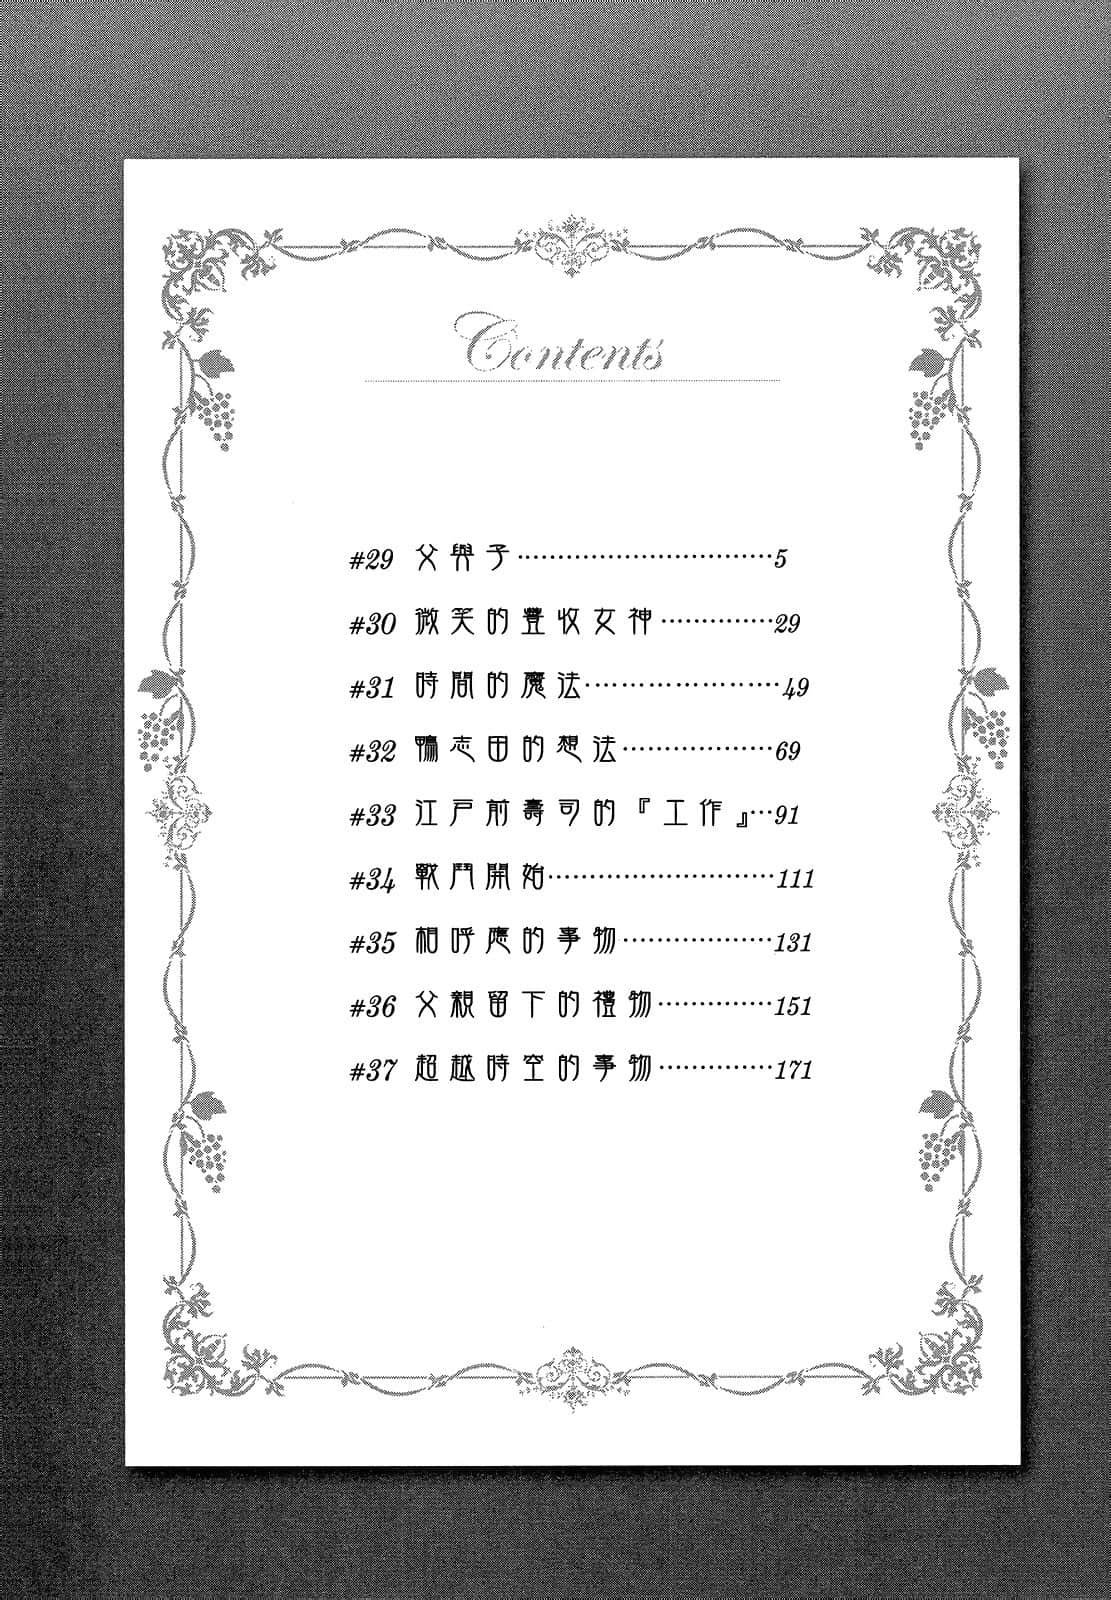 Contents
#29 父與子……………………………5
#30 微笑的豐收女神……………29
#31 時間的魔法……………………49
#32 鴨志田的想法………………69
#33 江戶前壽司的『工作』…91
#34 戰鬥開始…………………………111
#35 相呼應的事物………………131
#36 父親留下的禮物……………151
#37 超越時空的事物……………171